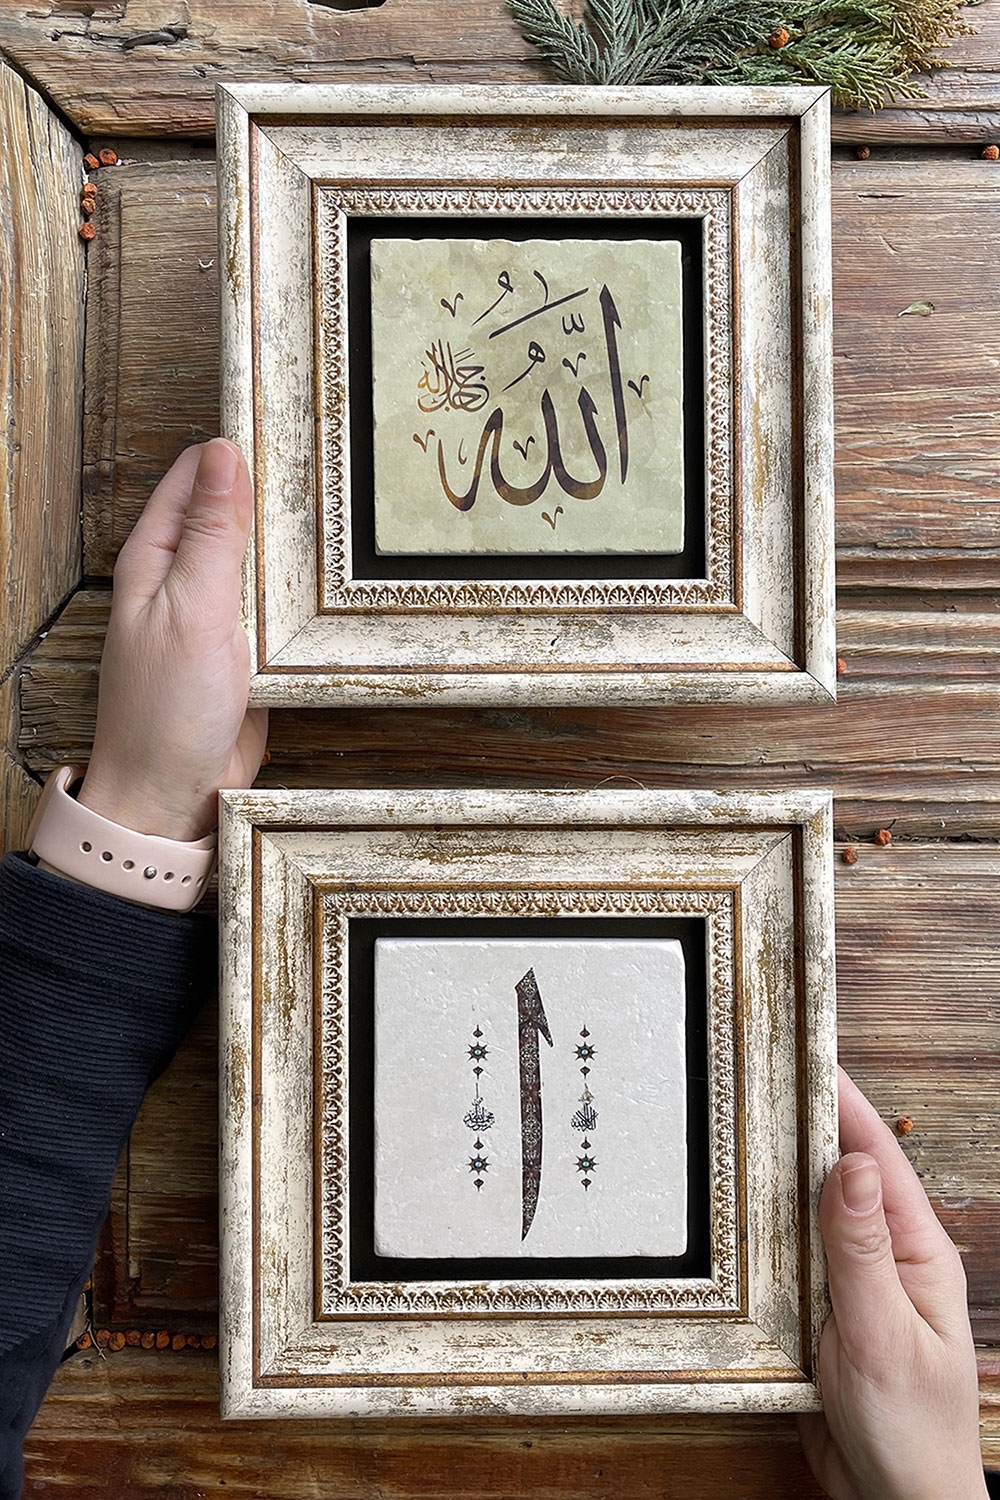 اللّٰهُ
جل جلاله
ا